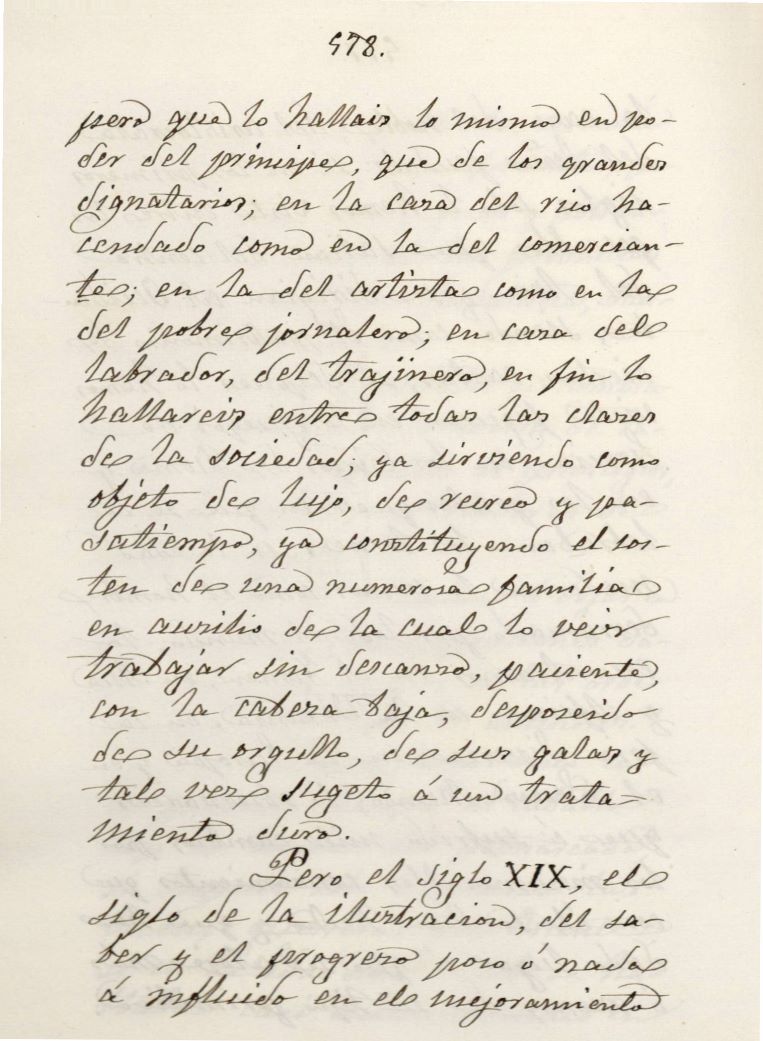 578.
pero que lo hallais lo mismo en po-
der del principe, que de los grandes
dignatarios; en la casa del rico ha-
cendado como en la del comercian-
te; en la del artista como en la
del pobre jornalero; en casa del
labrador, del trajinero, en fin lo
hallareis entre todas las clases
de la sociedad; ya sirviendo como
objeto de lujo, de recreo y pa-
satiempo, ya constituyendo el sos-
ten de una numerosa familia
en auxilio de la cual lo veis
trabajar sin descanso, paciente,
con la cabeza baja, desposeido
de su orgullo, de sus galas y
tal vez sugeto á un trata-
miento duro.
Pero el siglo XIX, el
siglo de la ilustracion, del sa-
ber y el progreso poco ó nada
á influido en el mejoramiento